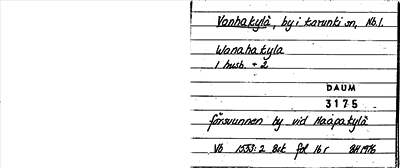 Vanhakylä, by i Karunki sn, Nb.l.
Wanahakyla
1 husb. + 2
DAUM
3175
försvunnen by vid Haapakylä
Vb 1553:2 Bet fol 16 r BH 1976